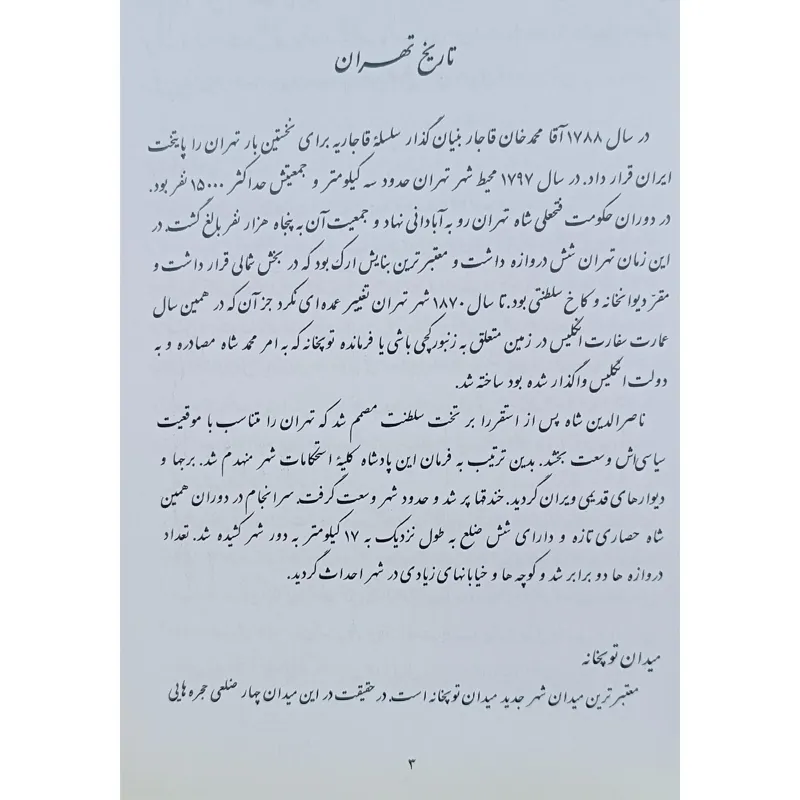 تاریخ تهران
در سال ۱۷۸۸ آقا محمدخان قاجار بنیان گذار سلسلهٔ قاجاریه برای نخستین بار تهران را پایتخت
ایران قرار داد. در سال ۱۷۹۷ محیط شهر تهران حدود سه کیلومتر و جمعیتش حداکثر ۱۵۰۰۰ نفر بود.
در دوران حکومت فتحعلی شاه تهران رو به آبادانی نهاد و جمعیت آن به پنجاه هزار نفر بالغ گشت. در
این زمان تهران شش دروازه داشت و معتبرترین بنایش ارک بود که در بخش شمالی قرار داشت و
مقرّ دیوانخانه و کاخ سلطنتی بود. تا سال ۱۸۷۰ شهر تهران تغییر عمده ای نکرد جز آن که در همین سال
عمارت سفارت انگلیس در زمین متعلق به زنبورکچی باشی یا فرمانده توپخانه که به امر محمد شاه مصادره و به
دولت انگلیس واگذار شده بود ساخته شد.
ناصرالدین شاه پس از استقررا بر تخت سلطنت مصمم شد که تهران را متناسب با موقعیت
سیاسی‌اش وسعت بخشد. بدین ترتیب به فرمان این پادشاه کلیهٔ استحکامات شهر منهدم شد. برجها و
دیوارهای قدیمی ویران گردید. خندقها پر شد و حدود شهر وسعت گرفت. سرانجام در دوران همین
شاه حصاری تازه و دارای شش ضلع به طول نزدیک به ۱۷ کیلومتر به دور شهر کشیده شد. تعداد
دروازه ها دو برابر شد و کوچه ها و خیابانهای زیادی در شهر احداث گردید.
میدان توپخانه
معتبرترین میدان شهر جدید میدان توپخانه است. در حقیقت در این میدان چهار ضلعی حجره هایی
۳